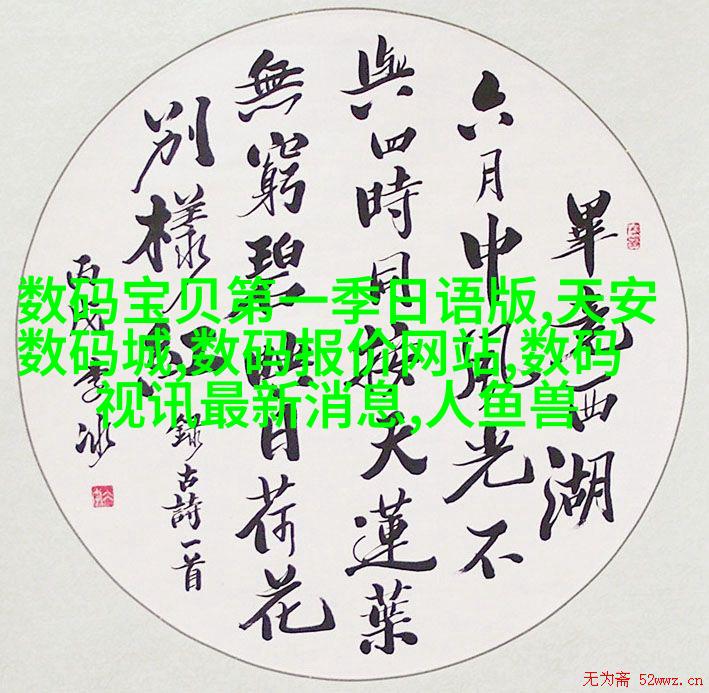 畢竟西湖
六月中風光不
與四時同接天蓮葉
無窮碧映日荷花
別樣紅
錄古詩一首
丙戌李冰
数码宝贝第一季日语版,天安
数码城,数码报价网站,数码
视讯最新消息,人鱼兽
无为斋 52wwz.cn